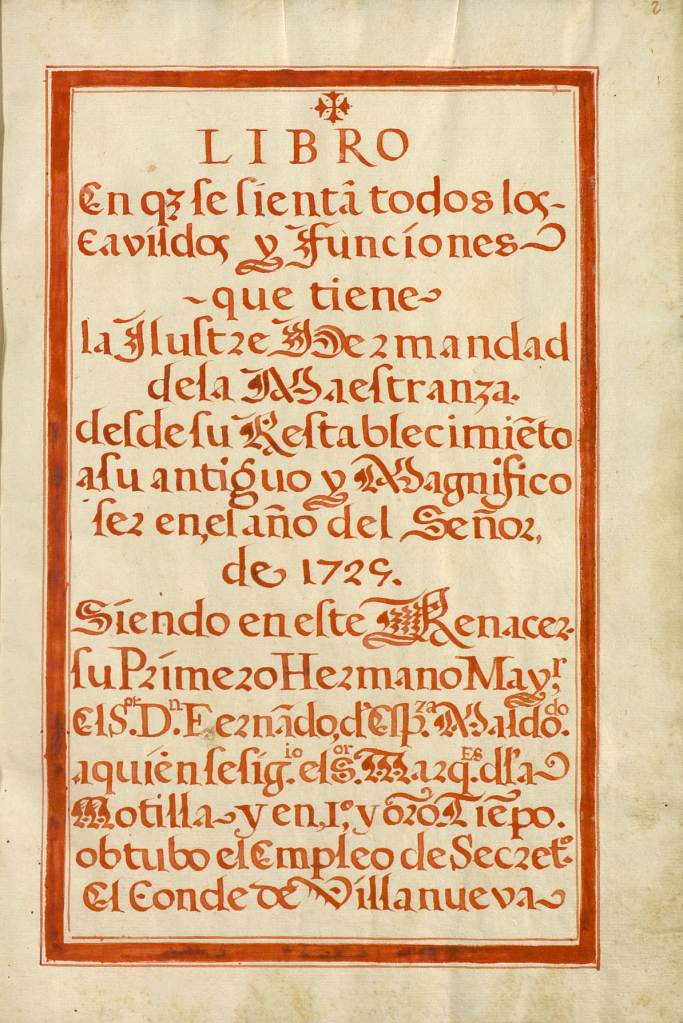 2
LIBRO
En qȝ se sientã todos los
Cavildos y Funciones
que tiene
la Ilustre Hermandad
de la Maestranza.
desde su Restablecimiẽto
a su antiguo y Magnifico
ser en, el año del Señor,
de 1725.
Siendo en este Renacer
su Primero Hermano May.r
El S.r D.n Fernãdo, d' Esp.za Maldo.do
a quien se sig.io el S.or Marq.es d' la
Motilla y en, 1,º y òtrò Tiẽpo.
obtubo el Empleo de Secret.º
El Conde de Villanueva